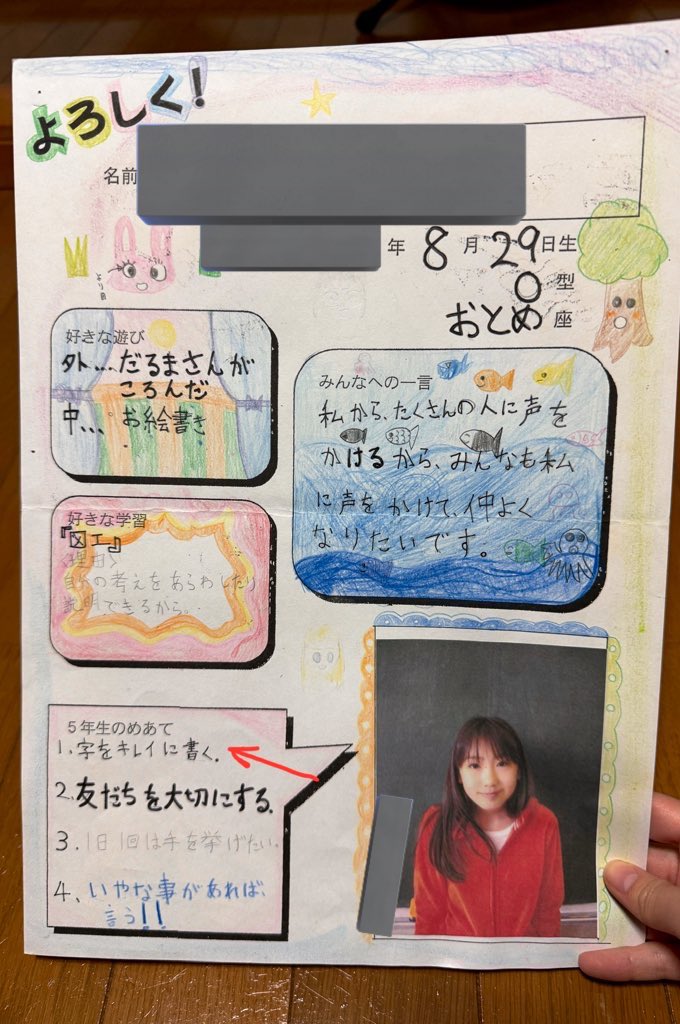 よろしく!
名前
年 8月29日生
O型
おとめ座
より目
好きな遊び
外…だるまさんが
ころんだ
中…お絵書き
みんなへの一言
私から、たくさんの人に声を
かけるから、みんなも私
に声をかけて、仲よく
なりたいです。
好きな学習
『図工』
〈理由〉
自分の考えをあらわしたり
説明できるから。
5年生のめあて
1、字をキレイに書く。
2、友だちを大切にする。
3、1日1回は手を挙げたい。
4、いやな事があれば、
言う!!